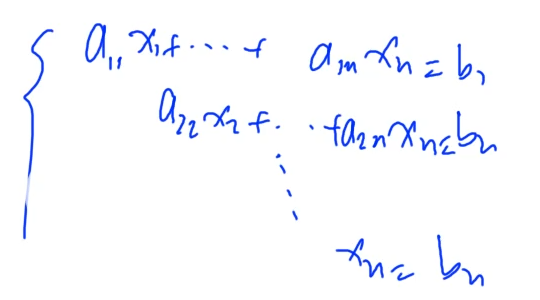 a₁₁x₁+···+ a₁ₙxₙ=b₁
a₂₂x₂+···+a₂ₙxₙ=b₂
xₙ=bₙ